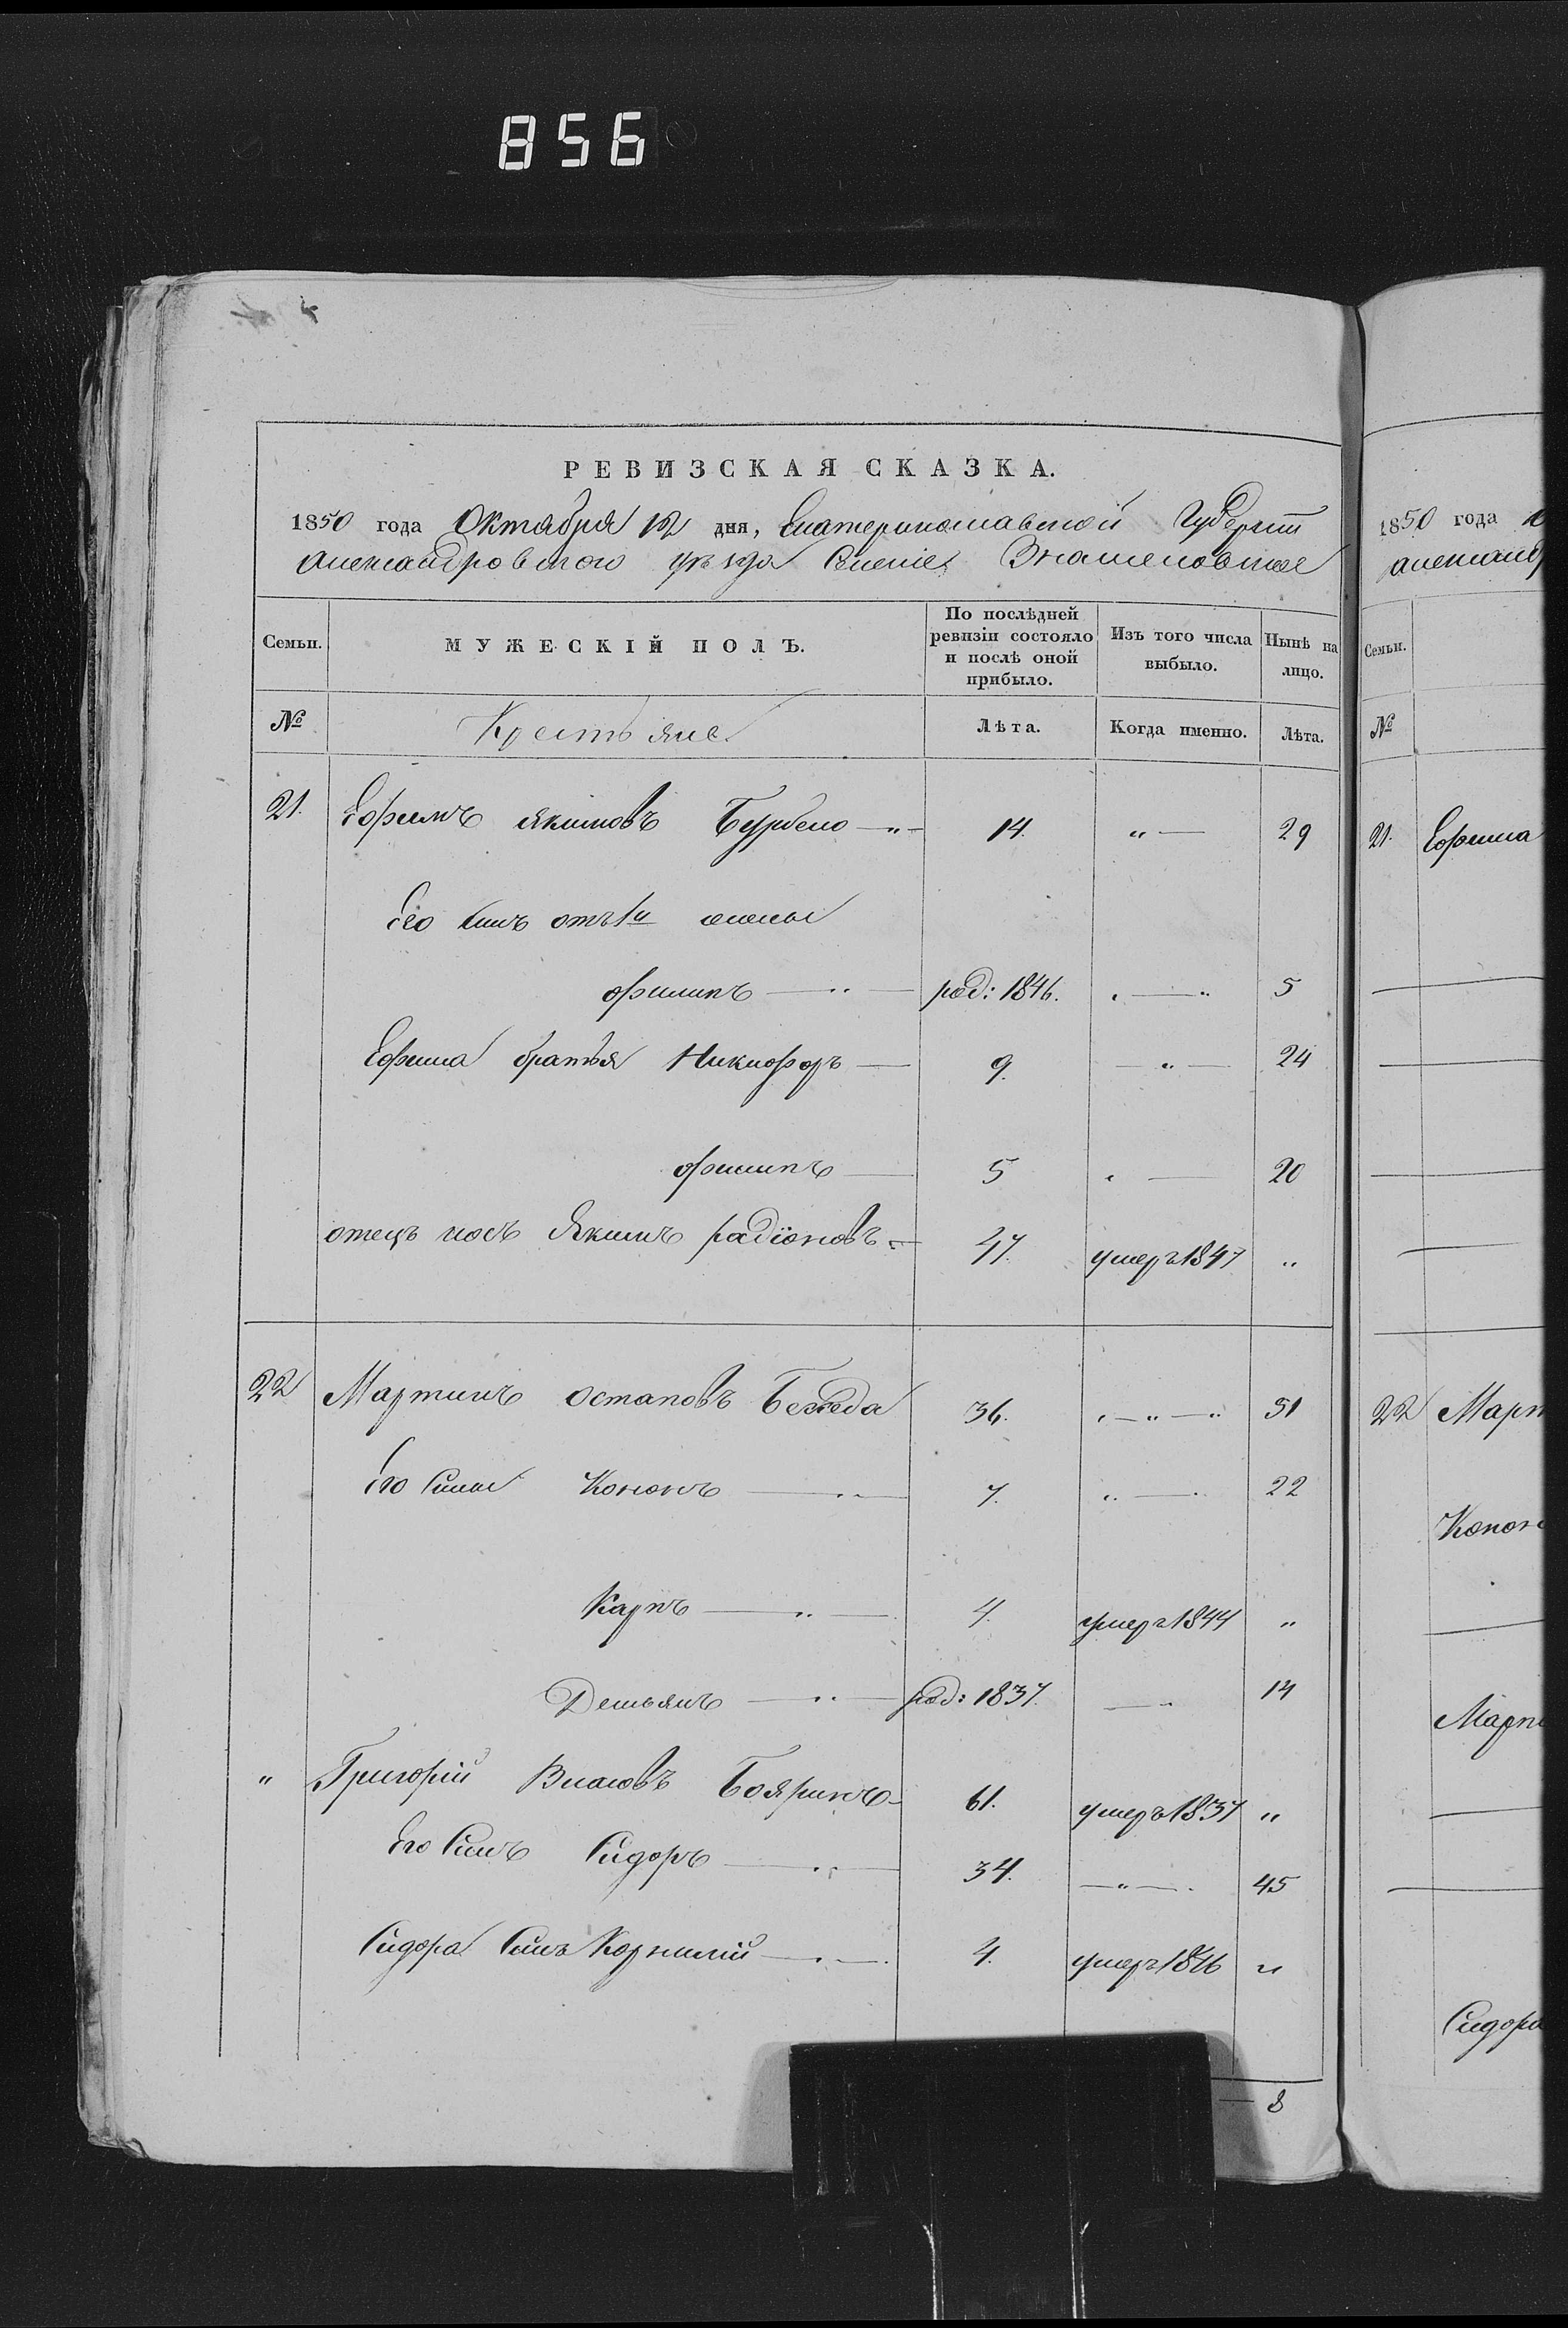 856
РЕВИЗСКАЯ СКАЗКА.
1850 года Октября 12 дня, Екатеринославской Губерніи
Александровского уѣзда Селеніе Знаменовкое
Семьи. МУЖЕСКІЙ ПОЛЪ. По послѣдней ревизіи состояло и послѣ оной прибыло. Изъ того числа выбыло. Нынѣ на лицо.
№ Крестьяне Лѣта. Когда именно. Лѣта.
21. Ефимъ Якимовъ —„— 14. „— 29
Его Синъ отъ 1й жены
Филипъ —„— род: 1846. „—„ 5
Ефима братья Никифоръ — 9. —„— 24
Филипъ — 5 „— 20
отецъ ихъ Якимъ радіоновъ — 47. умеръ 1847 „
22 Мартинъ Остаповъ 36. „—„—„ 51
Его Сины Кононъ —„— 7. „—„ 22
Карпъ —„— 4. умеръ 1844 „
Демьянъ —„— род: 1837. —„ 14
„ Григорій Власовъ Бояринъ — 61. умеръ 1837 „
Его Синъ Сидоръ —„— 34. —„— 45
Сидора Синъ Корнилій —„— 4. умеръ 1846 „
— 8
1850 года
Александ
Семьи.
№
21. Ефима
22 Март
Конон
Март
Сидора